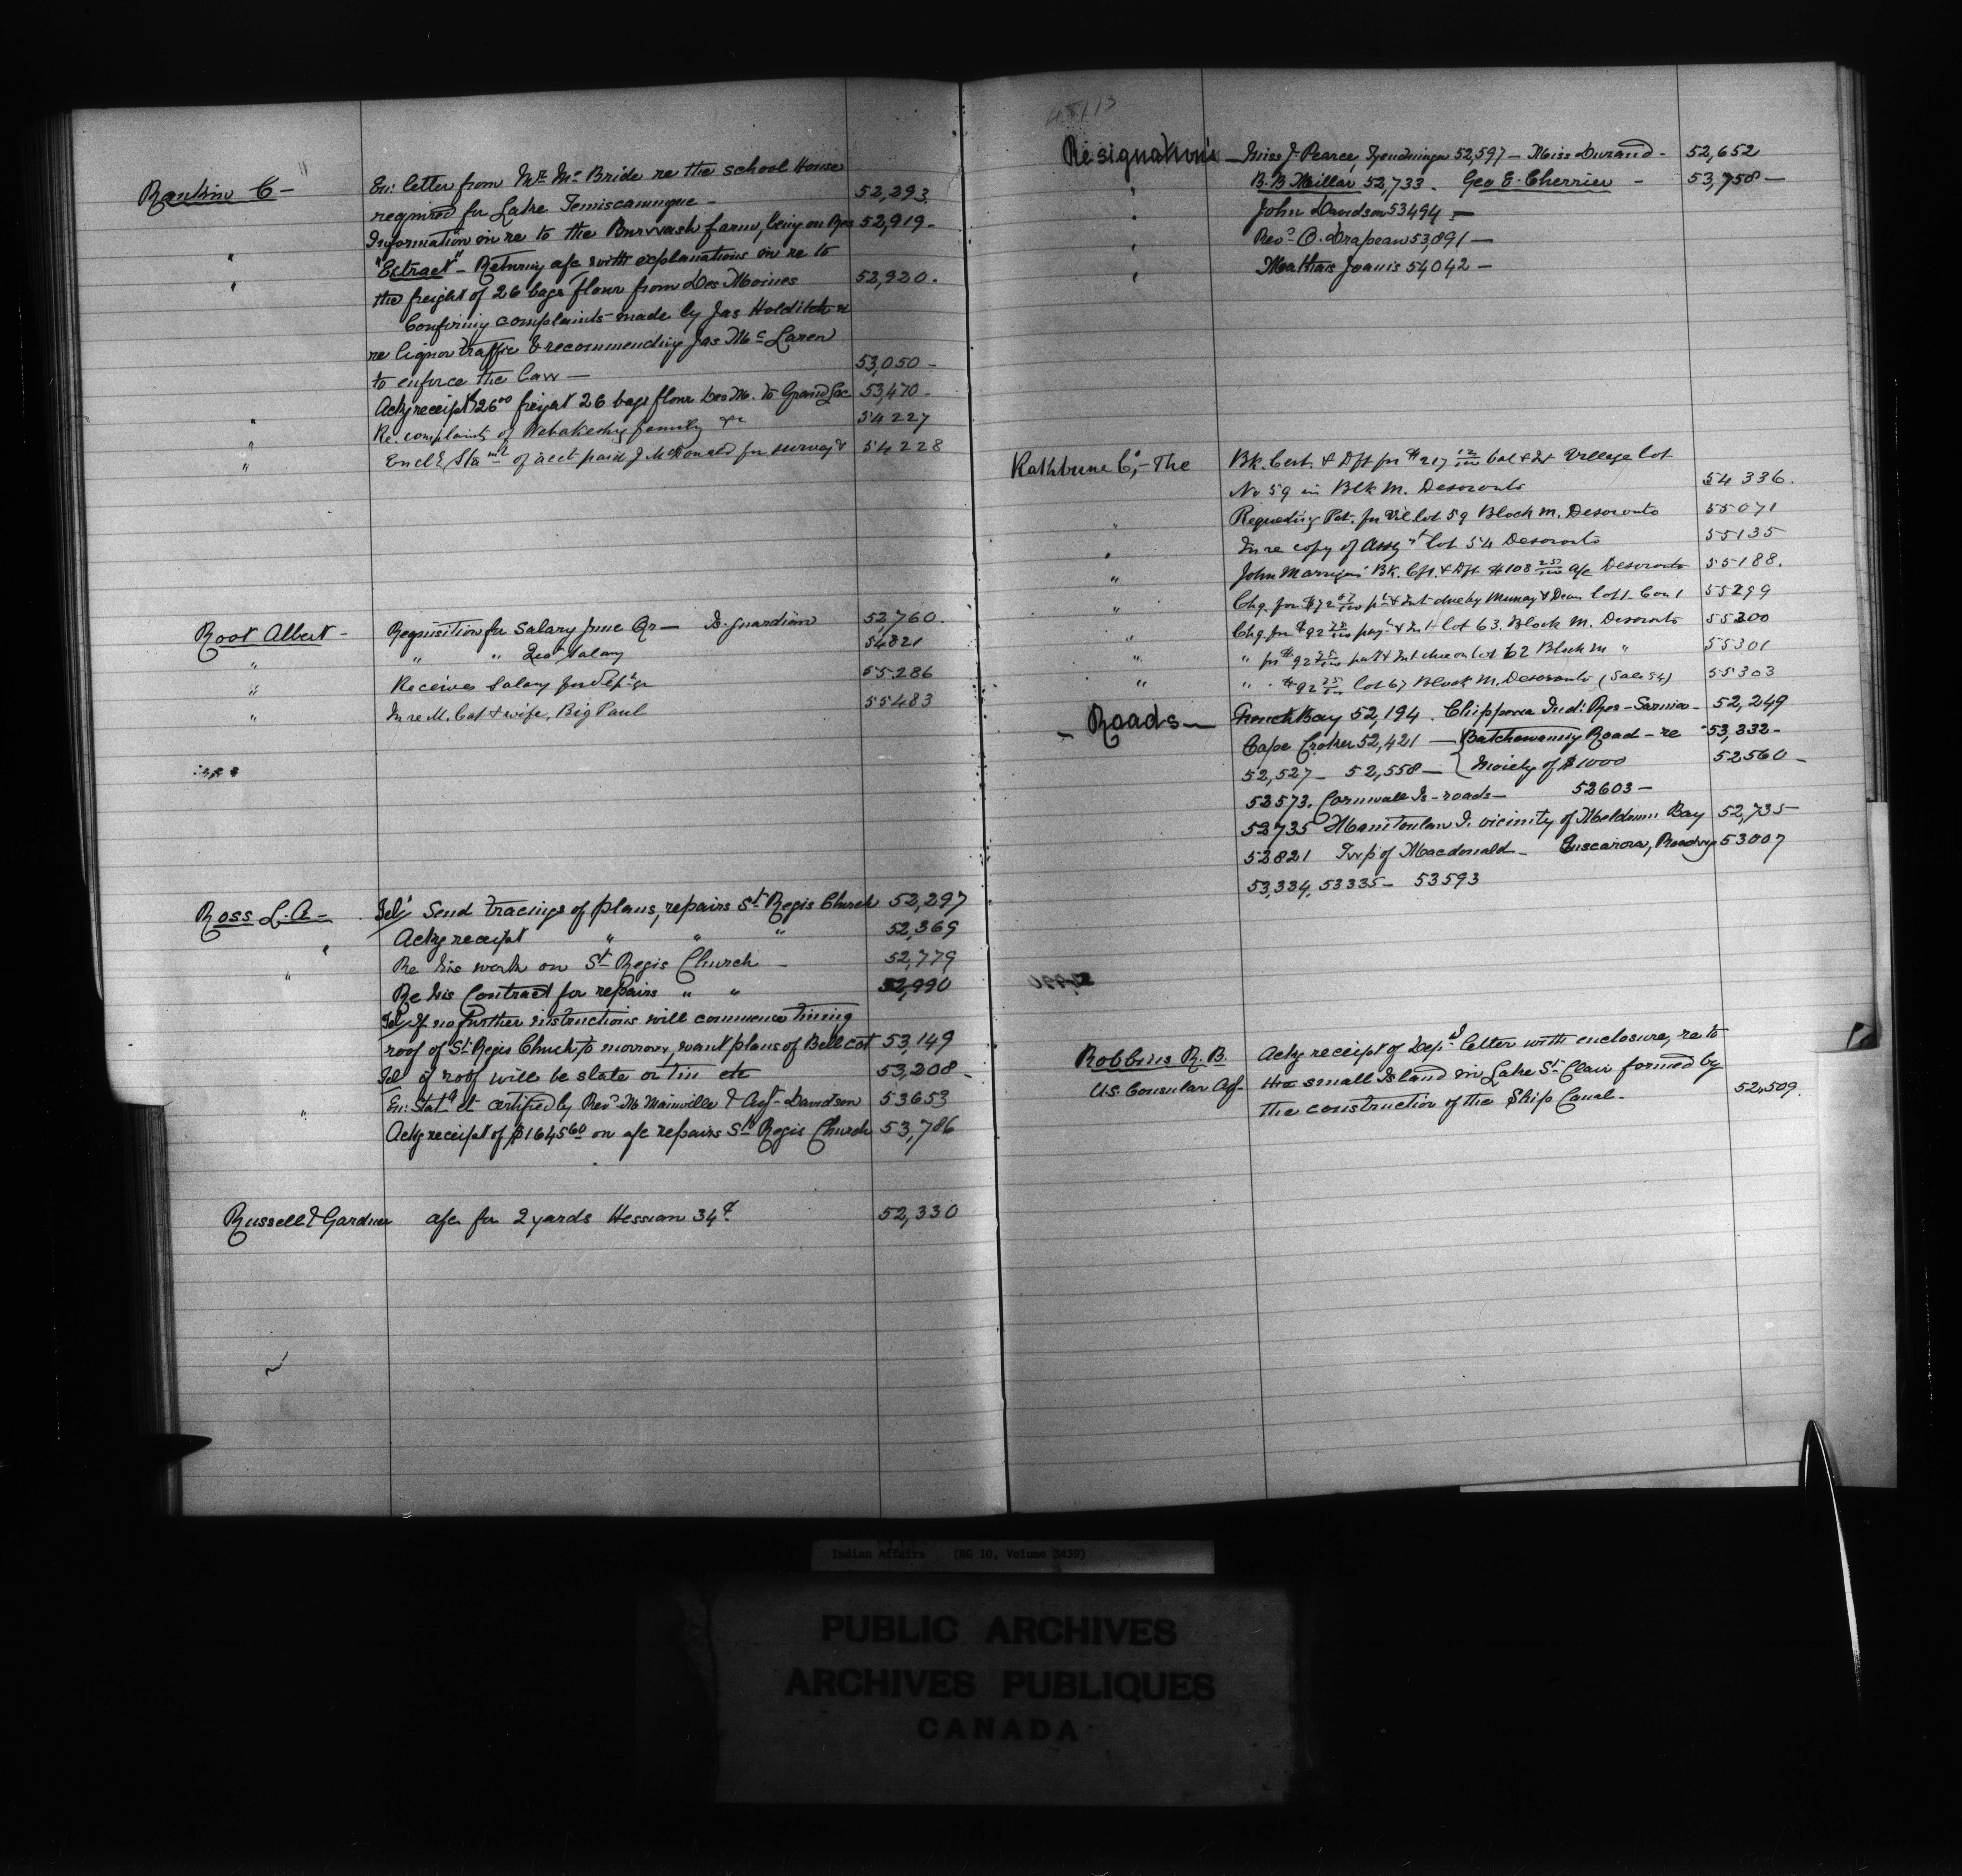 Rankin C - En: letter from Mr. Mc Bride re the school House
required for Lake Temiscamingue - 52,293
Information in re to the Burwash farm, being on Res 52,919 -
" "Extract" - Returning a/c with explanations in re to
" the freight of 26 bags flour from Des Moines 52,920 -
Confirming complaints made by Jas Holditch
re liquor traffic & recommending Jas Mc Laren
to enforce the law - 53,050 -
Ackg receipt $26 00 freight 26 bags flour Des M. to Grand Lac 53,470 -
" Re. complaints of family 54227
" Encl Sta mt of acct paid J McDonald for survey 54228
Root Albert - Requisition for Salary June Qr - Is. guardian 52,760.
" " " Salary 54821
" Receives Salary for Sept qr 55286
" In re M. Cat & wife, Big Paul 55483
Ross L. A - Tel; Send tracings of plans, repairs St. Regis Church 52,297
" Ackg receipt " " " 52,369
" Re his work on St. Regis Church - 52,779
Re his Contract for repairs " " 52,990
Tel If no further instructions will commence tining
roof of St. Regis Church to morrow, want plans of Bell cot 53,149
Tel if roof will be slate or tin etc 53,208 -
" En: Stat certified by Revd. M Mainville & Agt - Davidson 53653
Ackg receipt of $1645 60 on a/c repairs St. Regis Church 53,786
Russell & Gardner a/c for 2 yards Hessian 34 c. 52,330
Resignations - Miss J. Pearce, Tyendinaga 52,597 - Miss Durand - 52,652
" B. B Millar 52,733 - Geo E. Cherrier - 53,758 -
" John Davidson 53494 -
" Revd. O. Drapeau 53,891 -
" Mathais Joanis 54042 -
Rathbune Co, - The Bk. Cert. & Dft for $217 12/100 bal & Int Village lot
No 59 in Blk M. Deseronto 54336.
" Requesting Pat. for Vil. lot 59 Block M. Deseronto 55071
" In re copy of Assgt lot 54 Deseronto 55135
" John Bk. Cft. & Dft $108 25/100 a/c Deseronto 55188.
" Chq. for $72 Int due by Murray & lot 1. Con 1 55299
" Chq. for $92 & Int lot 63. Block M. Deseronto 55300
" " for $92 25/100 Int due on lot 62 Block M " 55301
" " $92 25/100 lot 67 Block M. Deseronto (Sale 54) 55303
- Roads - French Bay 52,194. Chippewa Ind: Res - Sarnia - 52,249
Cape Croker 52,421 - Batchewanny Road - re 53,332 -
52,527 - 52,558 - Moiety of $1000 52560 -
52573. Cornwall Is - roads - 52603 -
52735 Manitoulin I. vicinity of Meldrum Bay 52,735 -
52821 Twp of Macdonald - Tuscarora, Roadwys 53007
53,334, 53335 - 53593
Robbins R. B. Ackg receipt of Dept letter with enclosure, re to
U.S. Consular Agt - the small Island in Lake St. Clair formed by
the construction of the Ship Canal - 52,509.
Indian Affairs (RG 10, Volume 3439)
PUBLIC ARCHIVES
ARCHIVES PUBLIQUES
CANADA